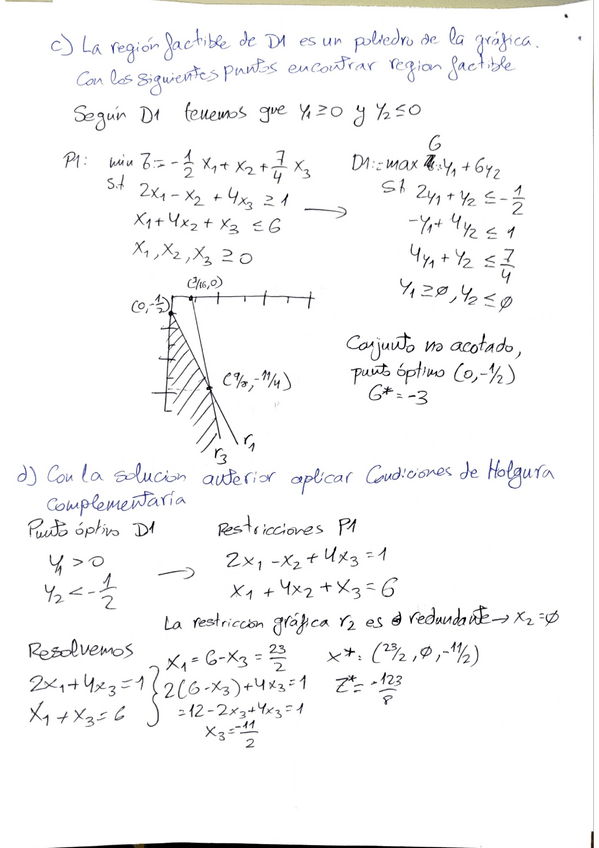 c) La región factible de D1 es un poliedro de la gráfica.
Con los siguientes puntos encontrar region factible
Según D1 tenemos que y₁≥0 y y₂≤0
P1: min Z=-1/2 x₁+x₂+7/4 x₃
s.t
2x₁-x₂+4x₃≥1
x₁+4x₂+x₃≤6
x₁,x₂,x₃≥0
D1:=max G=y₁+6y₂
St 2y₁+y₂≤-1/2
-y₁+4y₂≤1
4y₁+y₂≤7/4
y₁≥ø,y₂≤ø
(7/16,0)
(0,-1/2)
(9/8,-11/4)
r₃ r₁
Conjunto no acotado,
punto óptimo (0,-1/2)
G*=-3
d) Con la solucion anterior aplicar Condiciones de Holgura
Complementaria
Punto óptimo D1
y₁>0
y₂<-1/2
Restricciones P1
2x₁-x₂+4x₃=1
x₁+4x₂+x₃=6
La restriccion gráfica r₂ es redundante→x₂=ø
Resolvemos
2x₁+4x₃=1
x₁+x₃=6
x₁=6-x₃=23/2
2(6-x₃)+4x₃=1
=12-2x₃+4x₃=1
x₃=-11/2
x*:(23/2,ø,-11/2)
Z*=-123/8